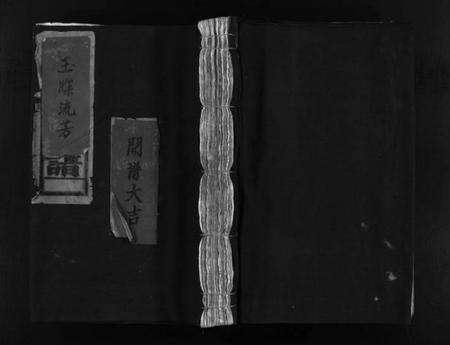 玉牒流芳
譜
開譜大吉